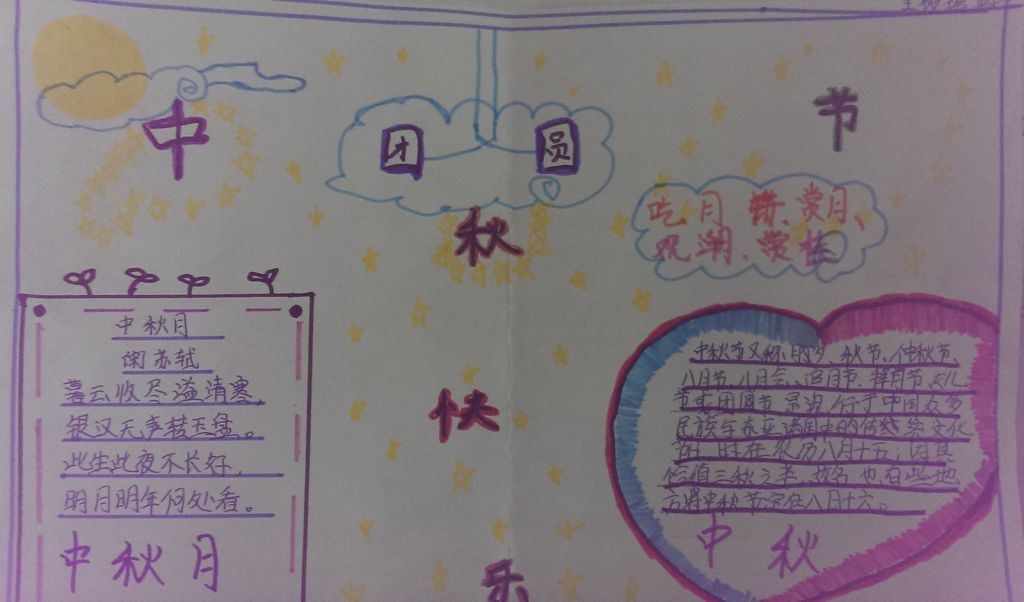 中
团
圆
节
秋
快
乐
吃月饼、赏月、
观潮、赏桂
中秋月
闲苏轼
暮云收尽溢清寒,
银汉无声转玉盘。
此生此夜不长好,
明月明年何处看。
中秋月
中秋节又称月夕、秋节、仲秋节、
八月节、八月会、追月节、拜月节
节或团圆节 是流行于中国众多
民族与东亚诸国中的传统文化
节 时在农历八月十五；因其
恰值三秋之半,故名 也有些地
方将中秋节定在八月十六。
中秋